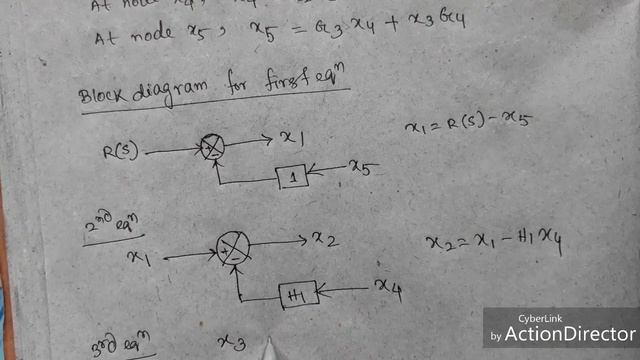 At node x4,
At node x5, x5 = G3 x4 + x3 G4
Block diagram for first eqn
R(S) + - x1 x1 = R(S) - x5
1 x5
2nd eqn
x1 + - x2 x2 = x1 - H1 x4
H1 x4
3rd eqn x3
CyberLink
by ActionDirector